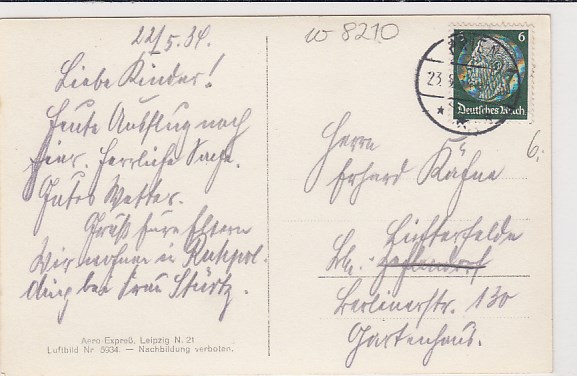 22/5.34.
Liebe Kinder!
Heute Ausflug nach
hier. Herrliche Tage.
Gutes Wetter.
Gruß Eure Eltern
Wir wohnen in Ruhpol-
ding bei Frau Stürtz.
Aero-Expreß, Leipzig N. 21
Luftbild Nr. 5934. — Nachbildung verboten.
w 8210
6
23.
Deutsches Reich
6.
Herrn
Erhard
Lichterfelde
Bln.
Berlinerstr. 130
Gartenhaus.